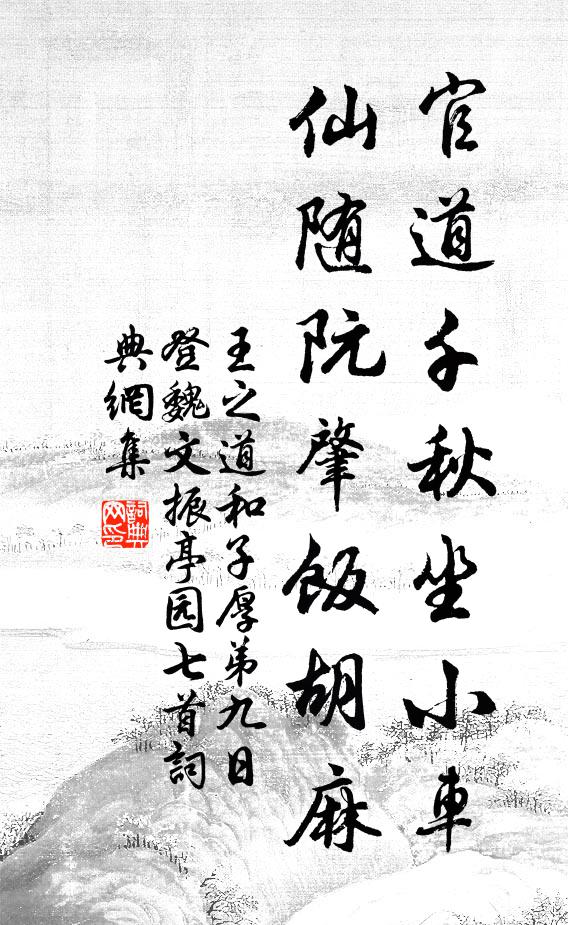 官道千秋坐小車
仙随阮肇飯胡麻
王之道和子厚弟九日
登魏文振亭园七首詞
典網集
詞典网印